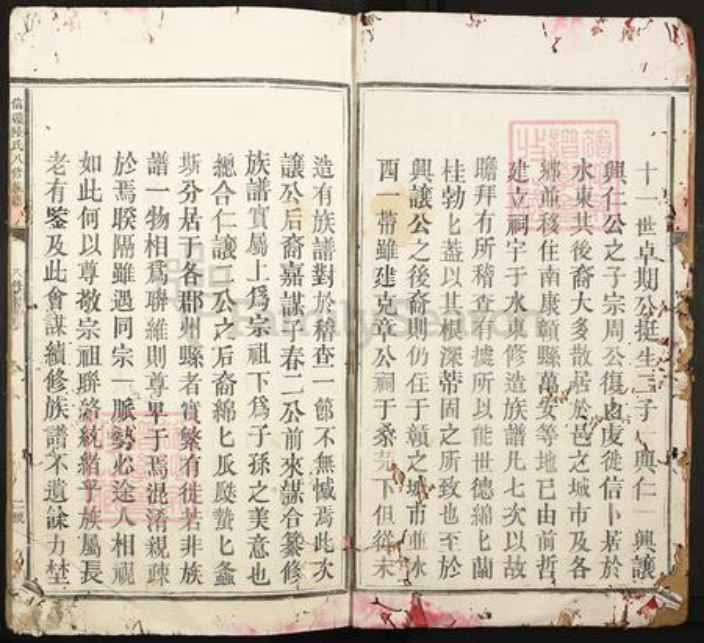 十一世卓期公挺生二子一興仁一興讓
興仁公之子宗周公復由虔徙信卜居於
水東其後裔大多散居於邑之城市及各
鄉並移住南康贛縣萬安等地已由前哲
建立祠宇于水東修造族譜凡七次以故
瞻拜有所稽查有據所以能世德綿匕蘭
桂勃匕蓋以其根深蒂固之所致也至於
興讓公之後裔則仍住于贛之城市並水
西一帶雖建克章公祠于桑芫下但從未
造有族譜對於稽查一節不無憾焉此次
讓公后裔嘉謀子春二公前來謀合纂修
族譜實屬上為宗祖下為子孫之美意也
總合仁讓二公之后裔綿匕瓜瓞蟄匕螽
斯分居于各郡州縣者實繁有徒若非族
譜一物相為聯維則尊卑于焉混淆親疎
於焉睽隔雖遇同宗一脈勢必途人相視
如此何以尊敬宗祖聯絡統緒乎族屬長
老有鑒及此會謀續修族譜不遺餘力埜
氏八修
FamilySearch